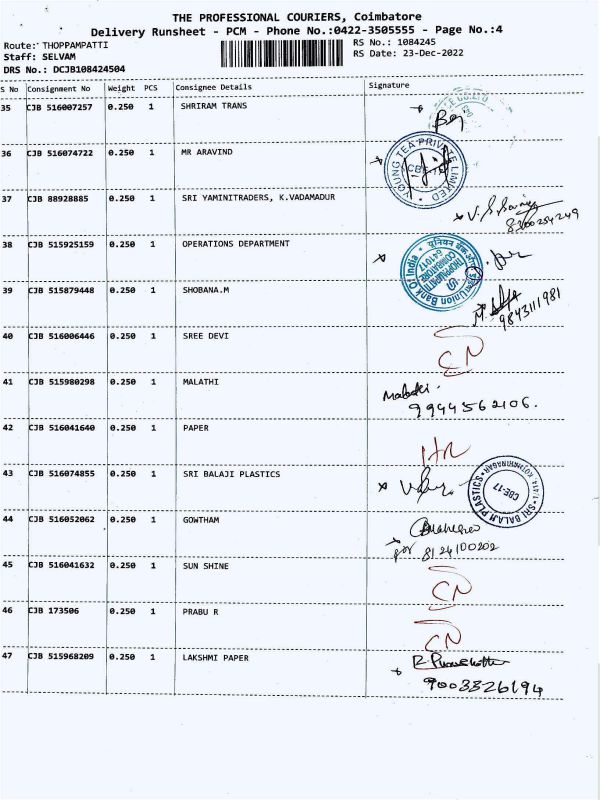 THE PROFESSIONAL COURIERS, Coimbatore
Delivery Runsheet - PCM - Phone No.:0422-3505555 - Page No.:4
Route: THOPPAMPATTI
RS No.: 1084245
Staff: SELVAM
RS Date: 23-Dec-2022
DRS No.: DCJB108424504
S No Consignment No Weight PCS Consignee Details Signature
35 CJB 516007257 0.250 1 SHRIRAM TRANS
36 CJB 516074722 0.250 1 MR ARAVIND
YOUNG TEA PRIVATE LIMITED
37 CJB 88928885 0.250 1 SRI YAMINITRADERS, K.VADAMADUR
38 CJB 515925159 0.250 1 OPERATIONS DEPARTMENT
Union Bank Of India
THOPPAMPATTI
COIMBATORE
641017
39 CJB 515879448 0.250 1 SHOBANA.M
9843111981
40 CJB 516006446 0.250 1 SREE DEVI
CN
41 CJB 515980298 0.250 1 MALATHI
Malathi.
9944562106.
42 CJB 516041640 0.250 1 PAPER
43 CJB 516074855 0.250 1 SRI BALAJI PLASTICS
SRI BALAJI PLASTICS
CBE-17
44 CJB 516052062 0.250 1 GOWTHAM
for 8124100202
45 CJB 516041632 0.250 1 SUN SHINE
CN
46 CJB 173506 0.250 1 PRABU R
CN
47 CJB 515968209 0.250 1 LAKSHMI PAPER
9003326194